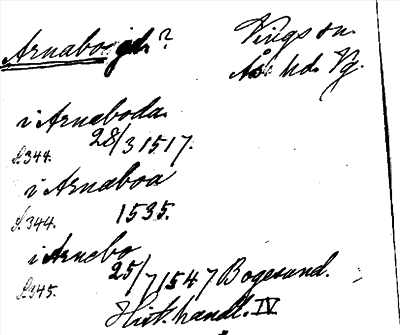 Arnebo gd.? Vings sn.
Ås hd. Vg.
i Arneboda
S.344. 28/3 1517.
i Arneboa
S.344. 1535.
i Arnebo
S.345. 25/7 1547 Bogesund.
Hist. handl. IV